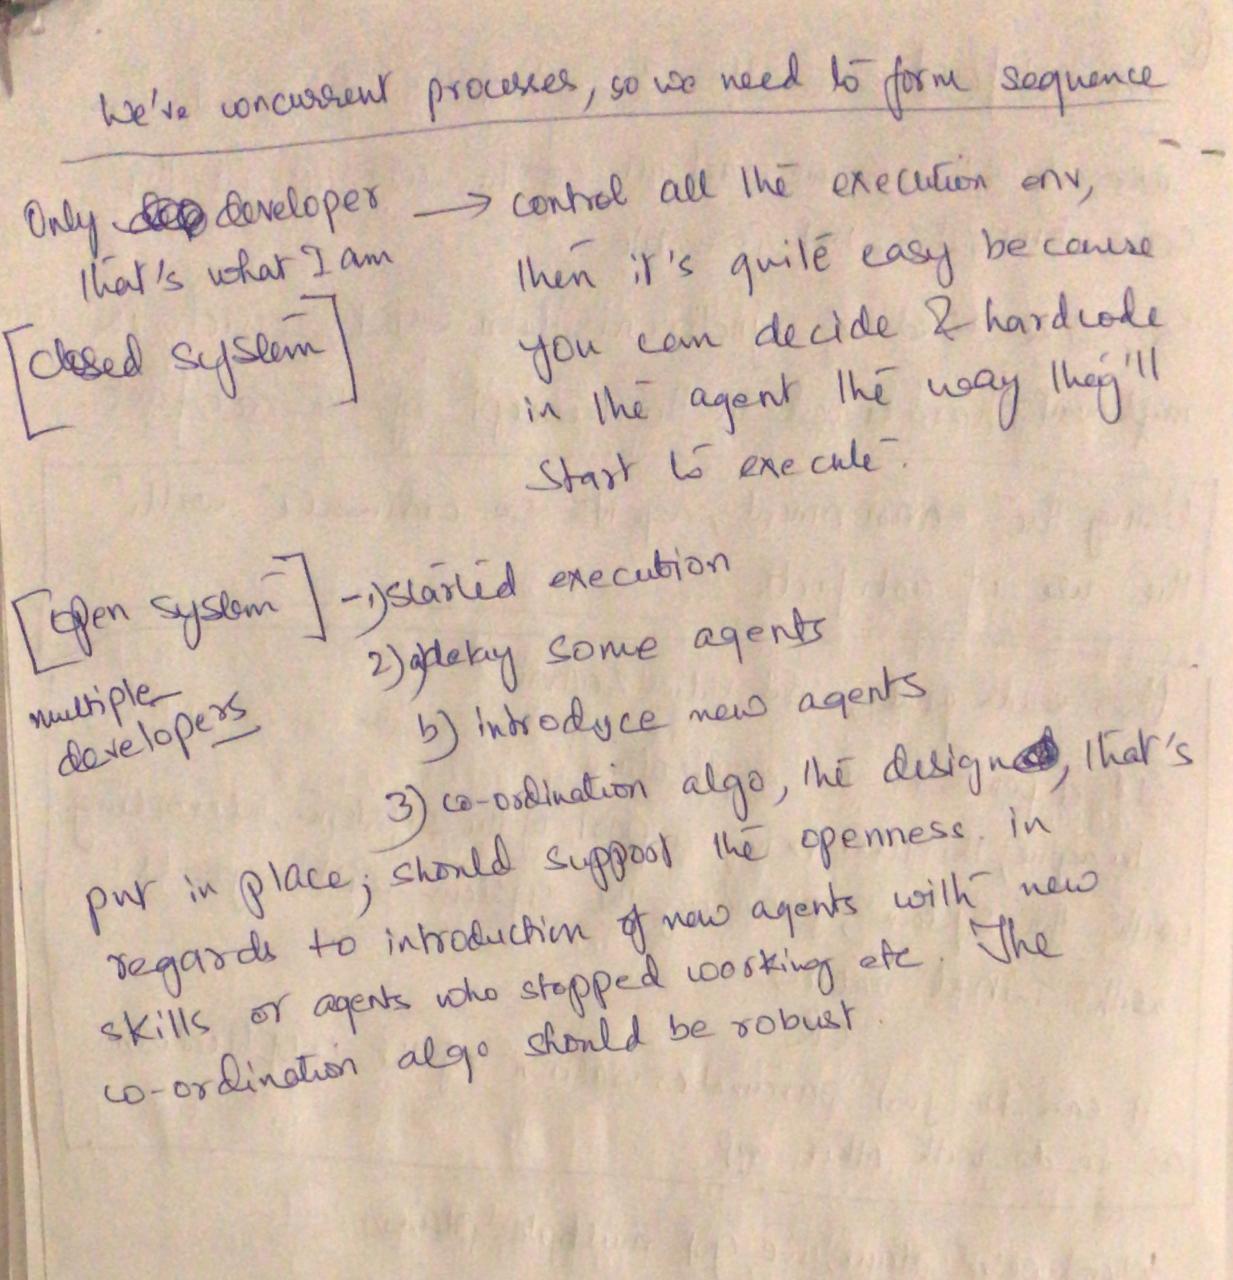 We've concurrent processes, so we need to form sequence
Only developer → control all the execution env,
that's what I am then it's quite easy because
[closed system] you can decide & hardcode
in the agent the way they'll
start to execute.
[open system] - 1) started execution
multiple developers 2) a) delay some agents
b) introduce new agents
3) co-ordination algo, the design, that's
put in place; should support the openness in
regards to introduction of new agents with new
skills or agents who stopped working etc. The
co-ordination algo should be robust.